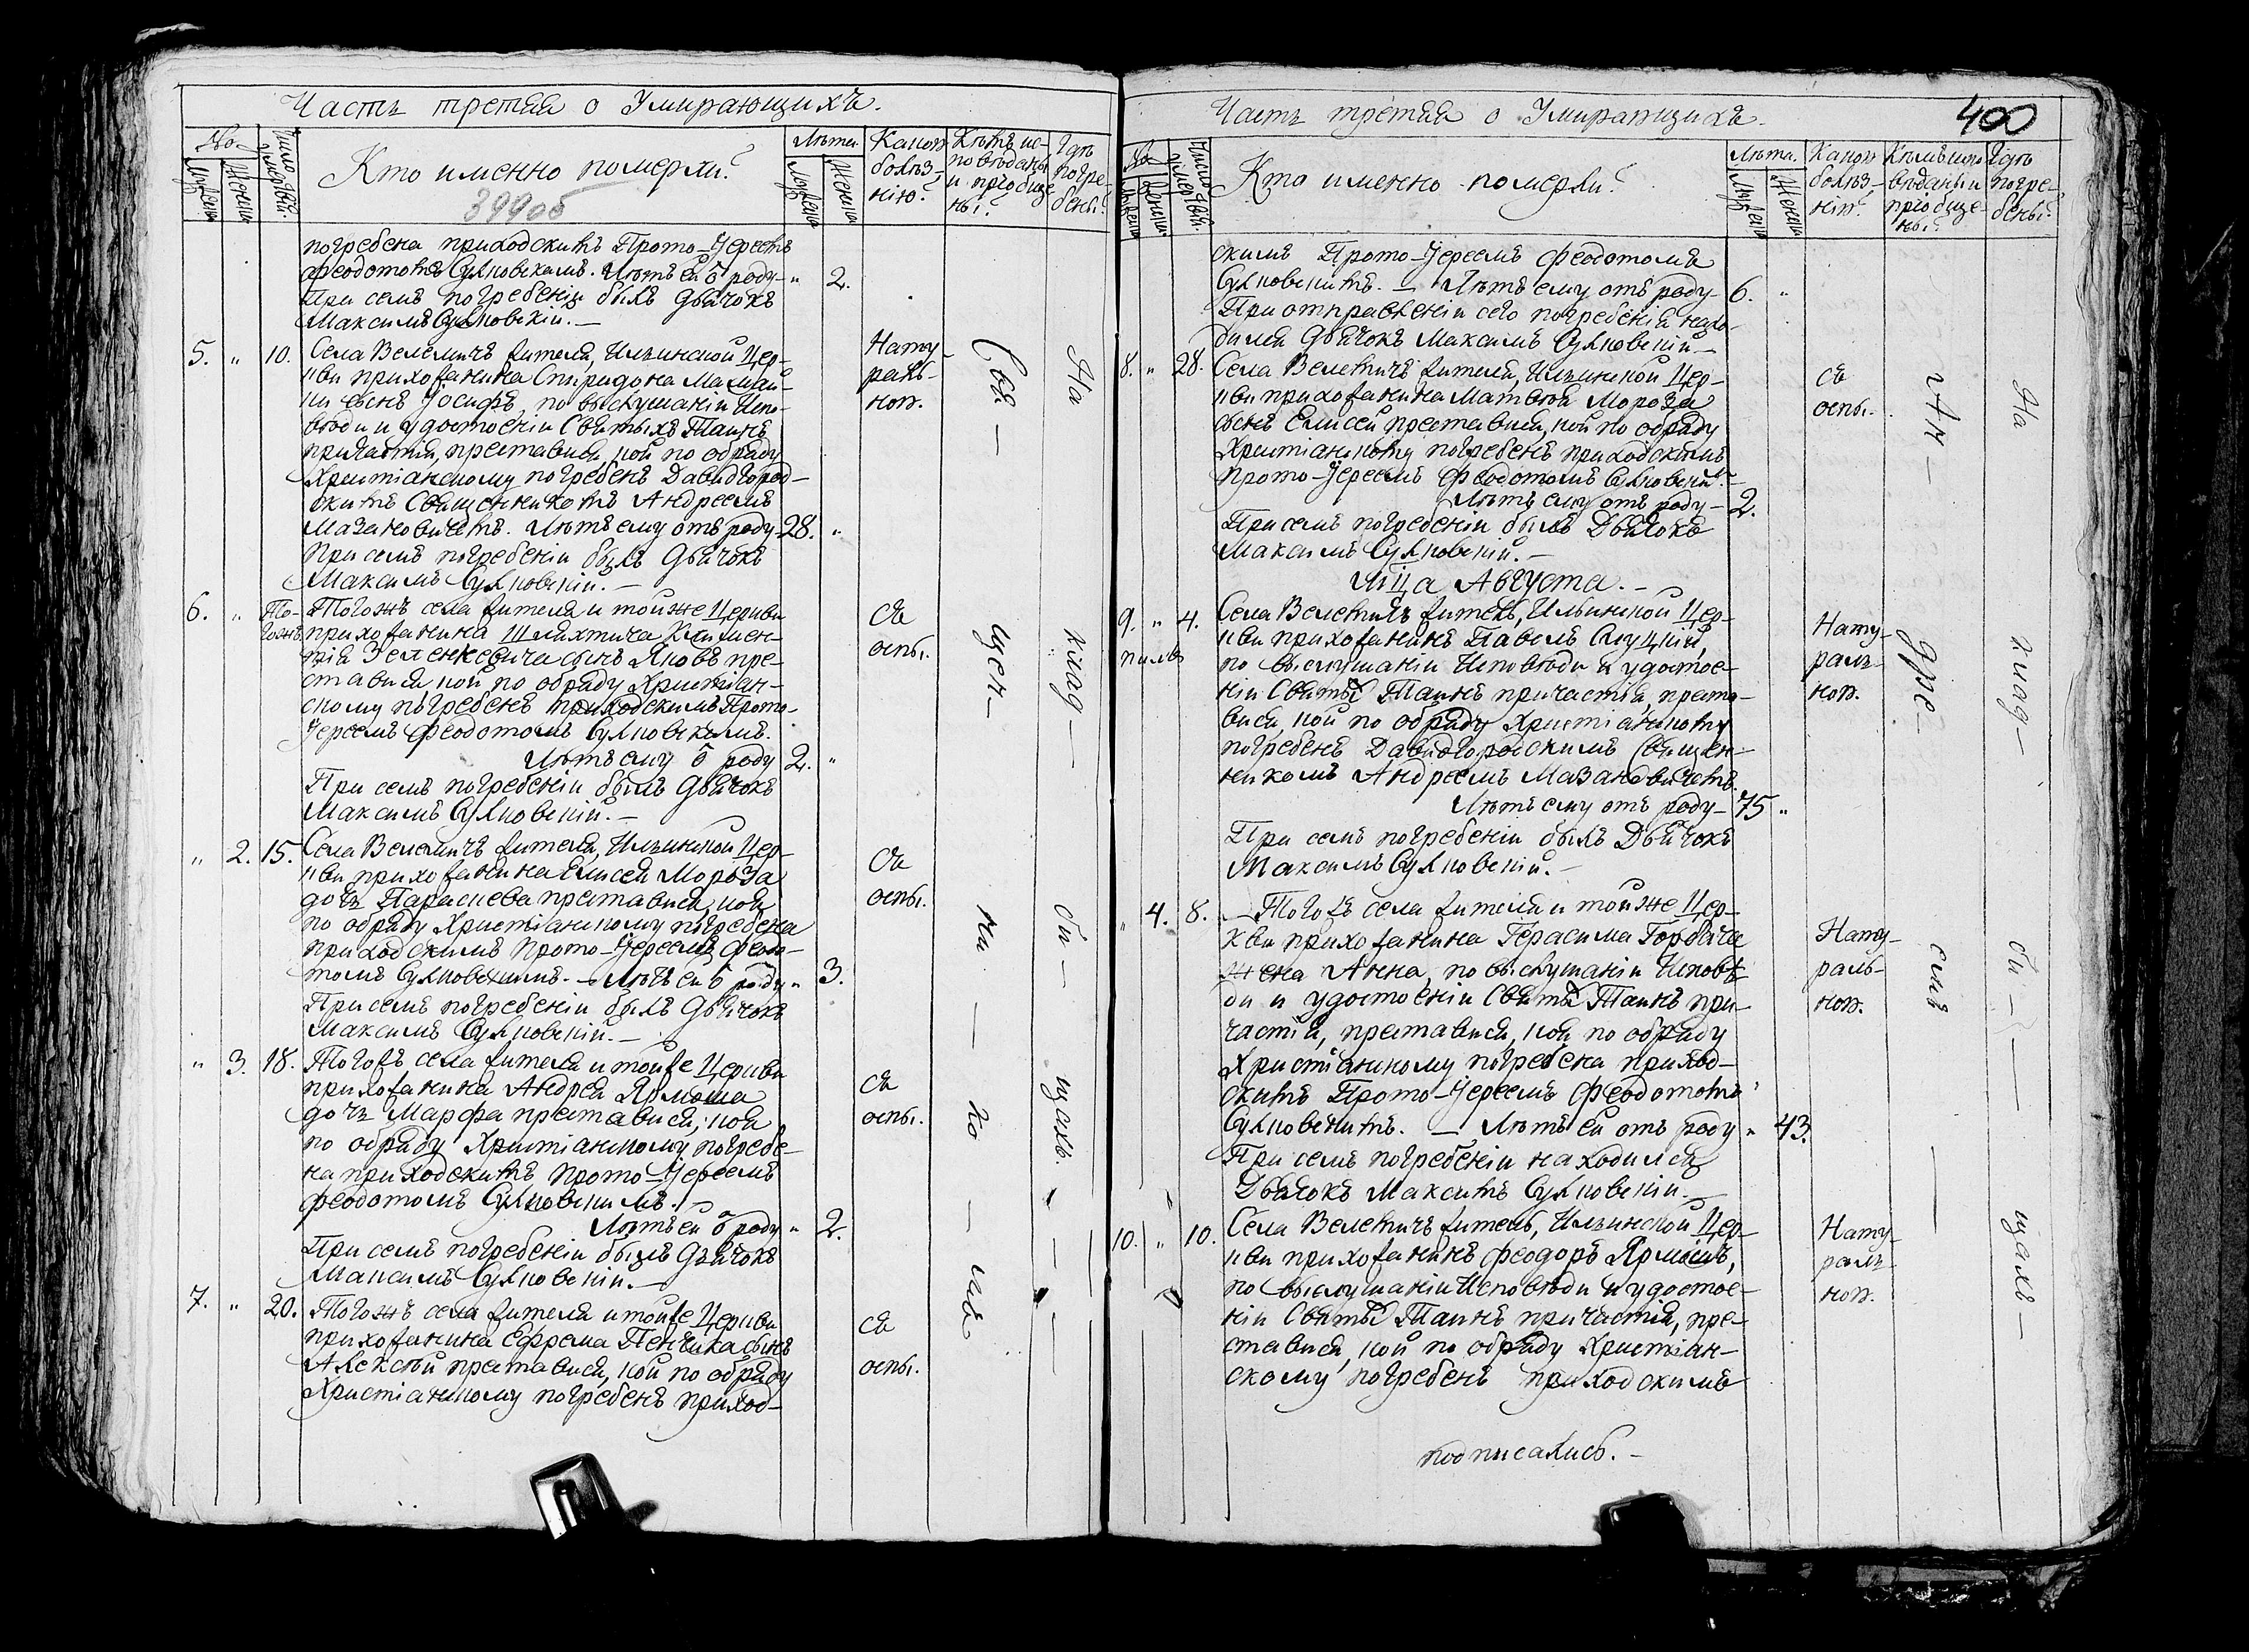 Часть третяя о Умирающихъ.
No.
Мужеска
Женска
Число умертвій.
Кто именно померли?
399об
Лѣта
Мужеска
Женска
Какою болѣзнію?
Кѣмъ исповѣданы и пріобщены?
Гдѣ погребены?
погребена приходскимъ Прото-Іереемъ
Феодотомъ Сулковскимъ. Лѣтъ ей ѿ роду- " 2.
При семъ погребеніи былъ Дьячокъ
Максимъ Сулковскій. —
5. " 10. Села Велемичъ жителя, Ильинской Цер-
кви прихожанина Спиридона Мамай-
ки сынъ Іосифъ, по выслушаніи Испо-
вѣди и удостоеніи Святыхъ Таинъ
причастія, преставися, кой по обряду
Христіанскому погребенъ Давидгород-
скимъ Священникомъ Андреемъ
Мазановичемъ. Лѣтъ ему отъ роду- 28. "
При семъ погребеніи былъ Дьячокъ
Максимъ Сулковскій. —
Нату-
раль-
ною.
6. " То-
гожъ
Тогожъ села жителя и тойже Церкви
прихожанина Шляхтича Климен-
тія Зеленкевича сынъ Яковъ пре-
ставися, кой по обряду Христіан-
скому погребенъ приходскимъ Прото-
Іереемъ Феодотомъ Сулковскимъ.
Лѣтъ ему ѿ роду 2. "
При семъ погребеніи былъ Дьячокъ
Максимъ Сулковскій. —
Съ
оспы.
" 2. 15. Села Велемичъ жителя, Ильинской Цер-
кви прихожанина Елисея Мороза
дочъ Параскева преставися, коя
по обряду Христіанскому погребена
приходскимъ Прото-Іереемъ Феодо-
томъ Сулковскимъ. — Лѣтъ ей ѿ роду " 3.
При семъ погребеніи былъ Дьячокъ
Максимъ Сулковскій. —
Съ
оспы.
" 3. 18. Тогожъ села жителя и тойже Церкви
прихожанина Андрея Ярмоша
дочъ Марфа преставися, коя
по обряду Христіанскому погребе-
на приходскимъ Прото-Іереемъ
Феодотомъ Сулковскимъ. —
Лѣтъ ей ѿ роду " 2.
При семъ погребеніи былъ Дьячокъ
Максимъ Сулковскій. —
Съ
оспы.
7. " 20. Тогожъ села жителя и тойже Церкви
прихожанина Ефрема Пенчика сынъ
Алексѣй преставися, кой по обряду
Христіанскому погребенъ приход-
Съ
оспы.
Свя — щен — ни — ко — мъ
На клад — би — щахъ.
Часть третяя о Умирающихъ.
400
No
Мужеска
Женска
Число умертвій.
Кто именно померли?
Лѣта.
Мужеска
Женска
Какою болѣз-нію?
Кѣмъ испо-вѣданы и пріобще-ны?
Гдѣ погре-бены?
скимъ Прото-Іереемъ Феодотомъ
Сулковскимъ. — Лѣтъ ему отъ роду- 6. "
При отправленіи сего погребенія нахо-
дился Дьячокъ Максимъ Сулковскій —
8. " 28. Села Велемичъ жителя, Ильинской Цер-
кви прихожанина Матвѣя Мороза
сынъ Елисей преставися, кой по обряду
Христіанскому погребенъ приходскимъ
Прото-Іереемъ Феодотомъ Сулковский. —
Лѣтъ ему отъ роду — 2.
При семъ погребеніи былъ Дьячокъ
Максимъ Сулковскій. —
съ
оспы.
Мца Августа. —
9. " 4. Села Велемичъ житель, Ильинской Цер-
кви прихожанинъ Павелъ Слуцкій,
по выслушаніи Исповѣди и удостое-
ніи Святы Таинъ причастія, преста-
вися, кой по обряду Христіанскому
погребенъ Давидгородскимъ Священ-
никомъ Андреемъ Мазановичемъ.
Лѣтъ ему отъ роду — 75 "
При семъ погребеніи былъ Дьячокъ
Максимъ Сулковскій. —
Нату-
раль-
ною.
" 4. 8. — Тогожъ села жителя и тойже Цер-
кви прихожанина Герасима Горбача
жена Анна, по выслушаніи Исповѣ-
ди и удостоеніи Святы Таинъ при-
частія, преставися, коя по обряду
Христіанскому погребена приход-
скимъ Прото-Іереемъ Феодотомъ
Сулковскимъ. — Лѣтъ ей отъ роду " 43.
При семъ погребеніи находился
Дьячокъ Максимъ Сулковскій. —
Нату-
раль-
ною.
10. " 10. Села Велемичъ житель, Ильинской Цер-
кви прихожанинъ Феодоръ Ярмошъ,
по выслушаніи Исповѣди и удостое-
ніи Святы Таинъ причастія, пре-
ставися, кой по обряду Христіан-
скому погребенъ приходскимъ
Нату-
раль-
ною.
Ан — дре — емъ
На клад — би — щахъ —
подписались. —